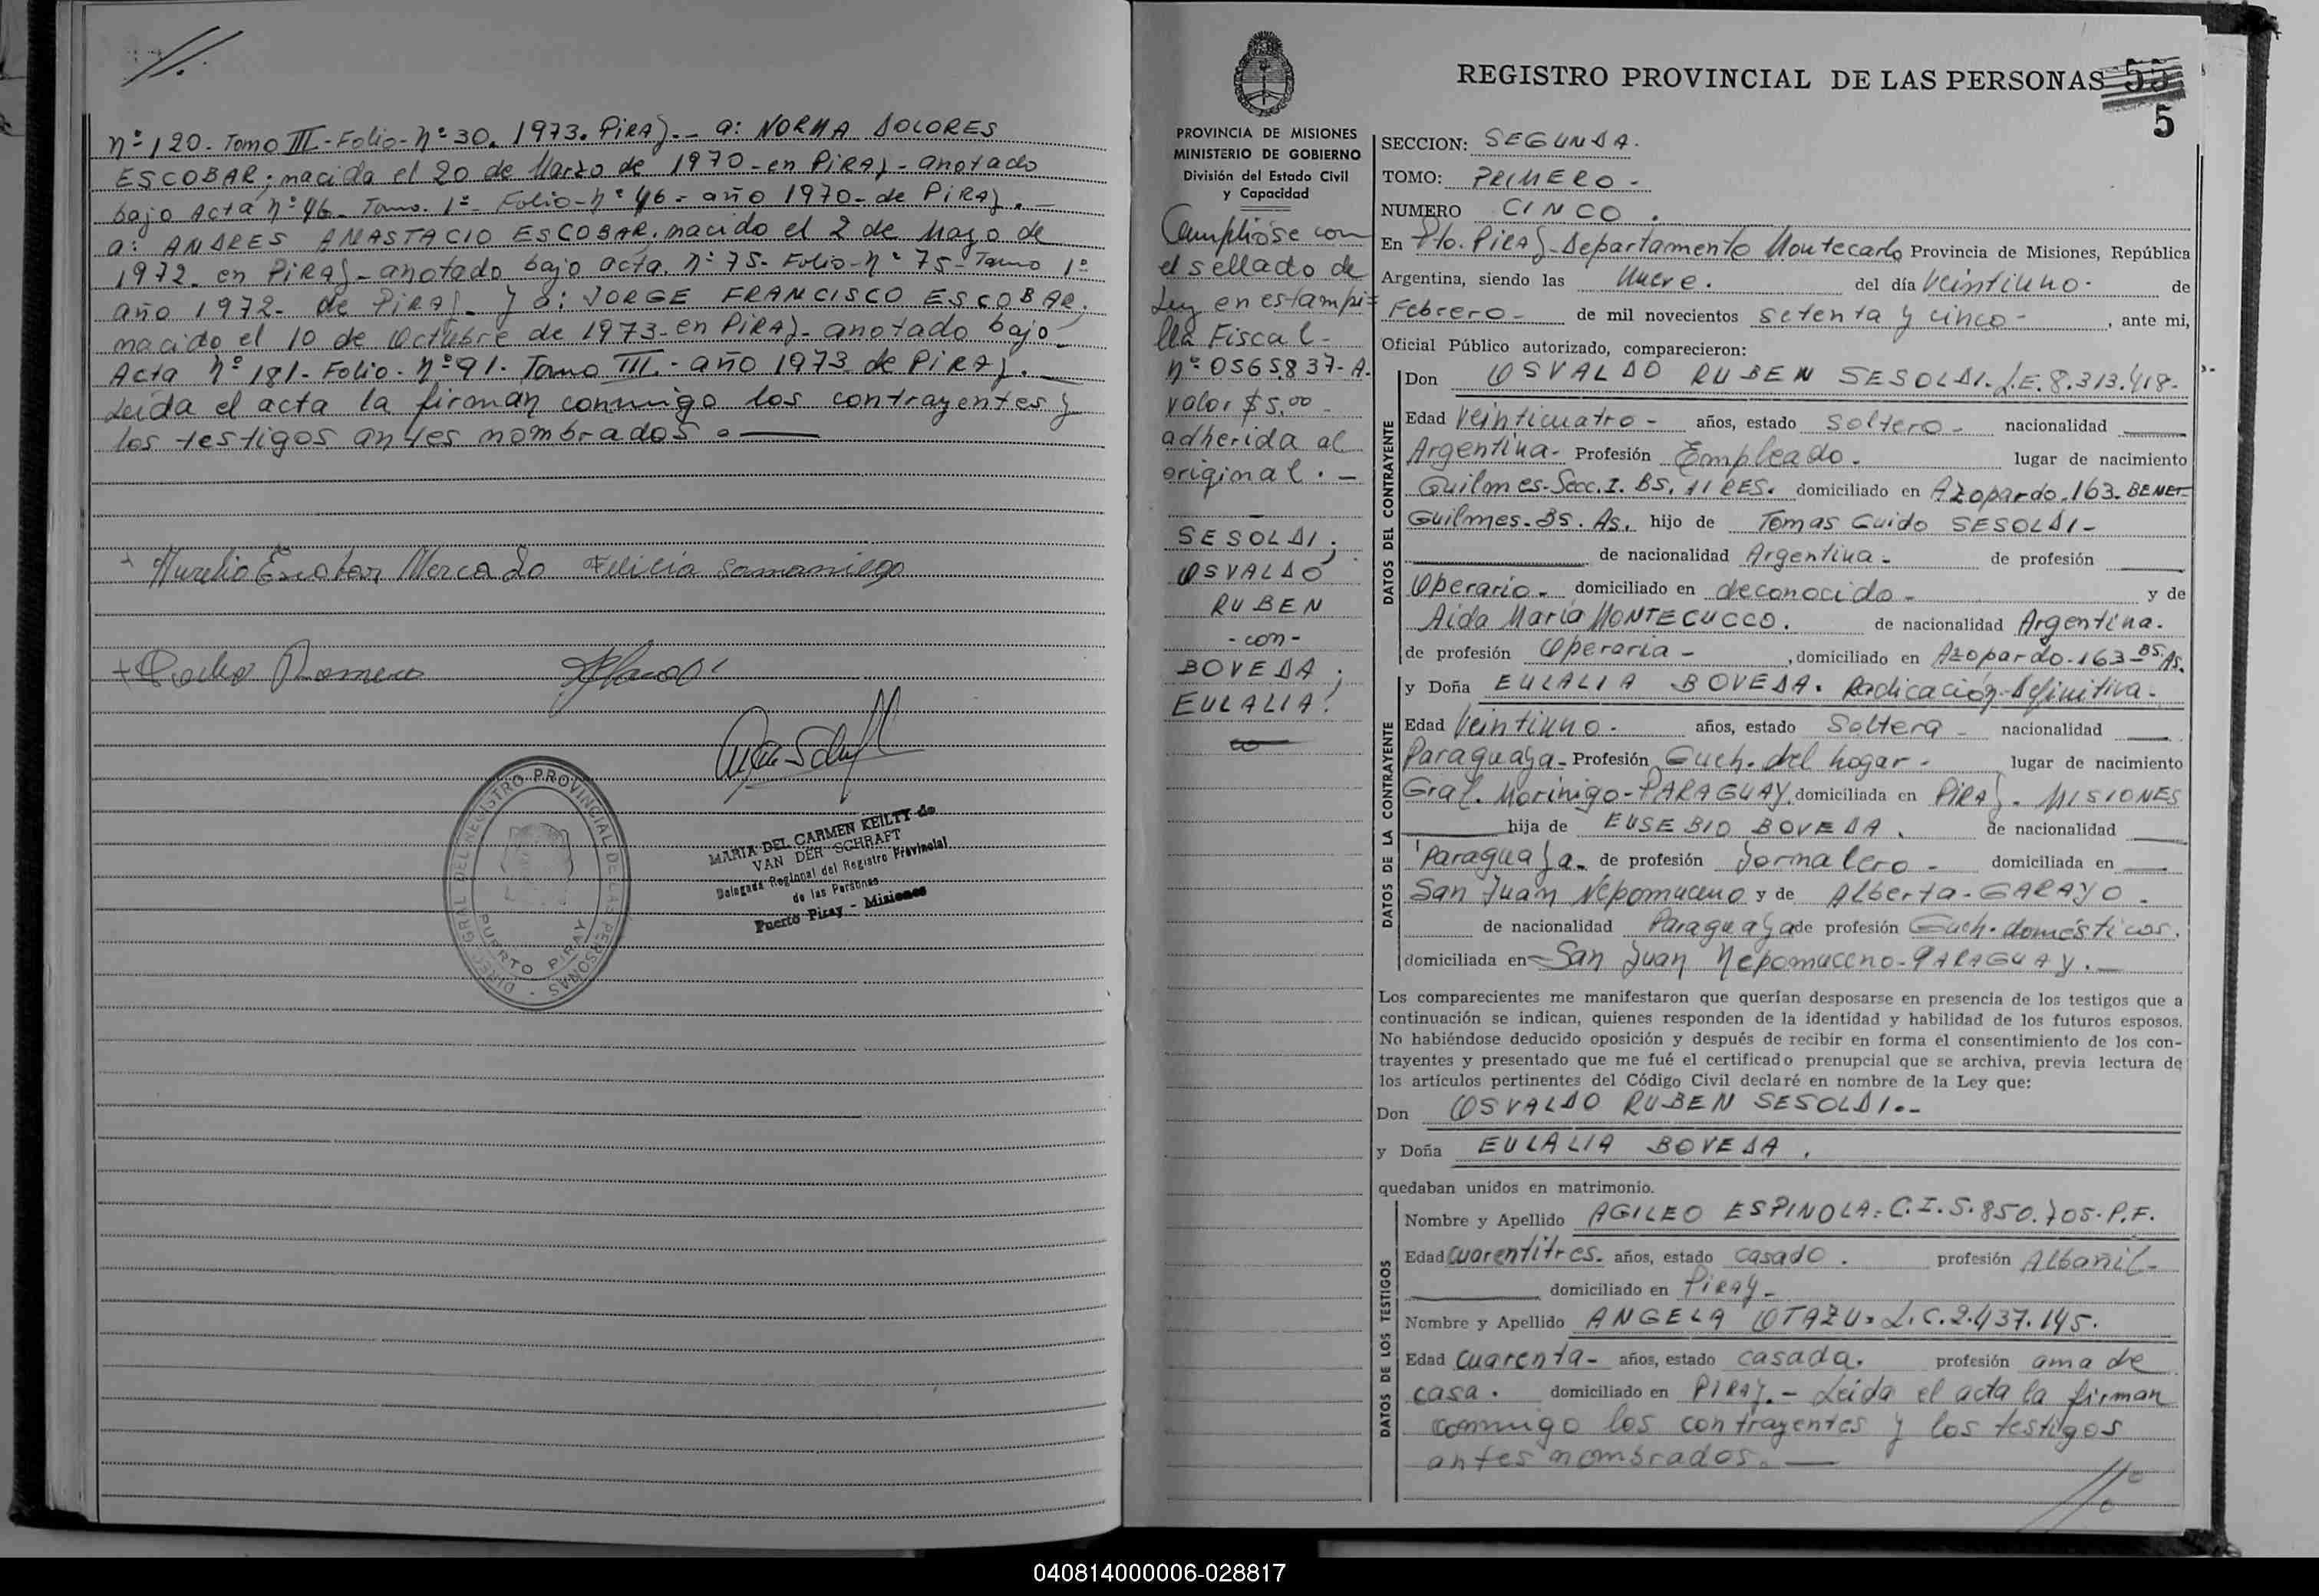 nº 120. Tomo III - Folio - nº 30. 1973. Piray. - a: NORMA DOLORES
ESCOBAR; nacida el 20 de Marzo de 1970 - en Piray - anotado
bajo Acta nº 46 - Tomo. 1º - Folio - nº 46 - año 1970 - de Piray. -
a: ANDRES ANASTACIO ESCOBAR. nacido el 2 de Mayo de
1972. en Piray - anotado bajo acta. nº 75 - Folio - nº 75 - Tomo 1º
año 1972 - de Piray - y a: JORGE FRANCISCO ESCOBAR;
nacido el 10 de Octubre de 1973 - en Piray - anotado bajo
Acta nº 181 - Folio - nº 91. Tomo III. - año 1973 de Piray. -
Leida el acta la firman conmigo los contrayentes y
los testigos antes nombrados. -
Aurelio Escobar Mercado Felicia Samaniego
Romero
DIREC. GRAL. DEL REGISTRO PROVINCIAL DE LAS PERSONAS
PUERTO PIRAY
MARIA DEL CARMEN KEILTY de
VAN DER SCHRAFT
Delegada Regional del Registro Provincial
de las Personas
Puerto Piray - Misiones
REGISTRO PROVINCIAL DE LAS PERSONAS 55
5
PROVINCIA DE MISIONES
MINISTERIO DE GOBIERNO
División del Estado Civil
y Capacidad
Cumplióse con
el sellado de
Ley en estampi=
lla Fiscal -
nº 0565837-A.
valor $5.00 -
adherida al
original. -
SESOLDI;
OSVALDO
RUBEN
- con -
BOVEDA;
EULALIA.
SECCION: SEGUNDA.
TOMO: PRIMERO -
NUMERO CINCO.
En Pto. Piray - Departamento Montecarlo Provincia de Misiones, República
Argentina, siendo las Nueve. del día Veintiuno - de
Febrero - de mil novecientos setenta y cinco - , ante mi,
Oficial Público autorizado, comparecieron:
DATOS DEL CONTRAYENTE
Don OSVALDO RUBEN SESOLDI. L.E. 8.313.418.
Edad Veinticuatro - años, estado Soltero - nacionalidad
Argentina - Profesión Empleado. lugar de nacimiento
Quilmes - Secc. I. BS. AIRES. domiciliado en Azopardo. 163. BENET-
Quilmes. BS. As. hijo de Tomas Guido SESOLDI -
de nacionalidad Argentina - de profesión
Operario - domiciliado en deconocido - y de
Aida Maria MONTECUCCO. de nacionalidad Argentina.
de profesión Operaria - , domiciliado en Azopardo - 163 - BS. As.
DATOS DE LA CONTRAYENTE
y Doña EULALIA BOVEDA. Radicación - Definitiva -
Edad Veintiuno - años, estado Soltera - nacionalidad
Paraguaya - Profesión Queh. del hogar - lugar de nacimiento
Gral. Morinigo - PARAGUAY. domiciliada en PIRAY. MISIONES
hija de EUSEBIO BOVEDA. de nacionalidad
Paraguaya - de profesión Jornalero - domiciliada en
San Juan Nepomuceno y de Alberta - GARAYO -
de nacionalidad Paraguaya de profesión Queh. domésticos.
domiciliada en San Juan Nepomuceno - PARAGUAY. -
Los comparecientes me manifestaron que querían desposarse en presencia de los testigos que a
continuación se indican, quienes responden de la identidad y habilidad de los futuros esposos.
No habiéndose deducido oposición y después de recibir en forma el consentimiento de los con-
trayentes y presentado que me fué el certificado prenupcial que se archiva, previa lectura de
los artículos pertinentes del Código Civil declaré en nombre de la Ley que:
Don OSVALDO RUBEN SESOLDI. -
y Doña EULALIA BOVEDA.
quedaban unidos en matrimonio.
DATOS DE LOS TESTIGOS
Nombre y Apellido AGILEO ESPINOLA: C.I. 5.850.705. P.F.
Edad cuarentitres. años, estado casado. profesión Albañil -
domiciliado en Piray -
Nombre y Apellido ANGELA OTAZU. L.C. 2.437.145.
Edad cuarenta - años, estado casada. profesión ama de
casa. domiciliado en PIRAY. - Leida el acta la firman
conmigo los contrayentes y los testigos
antes nombrados. -
040814000006-028817